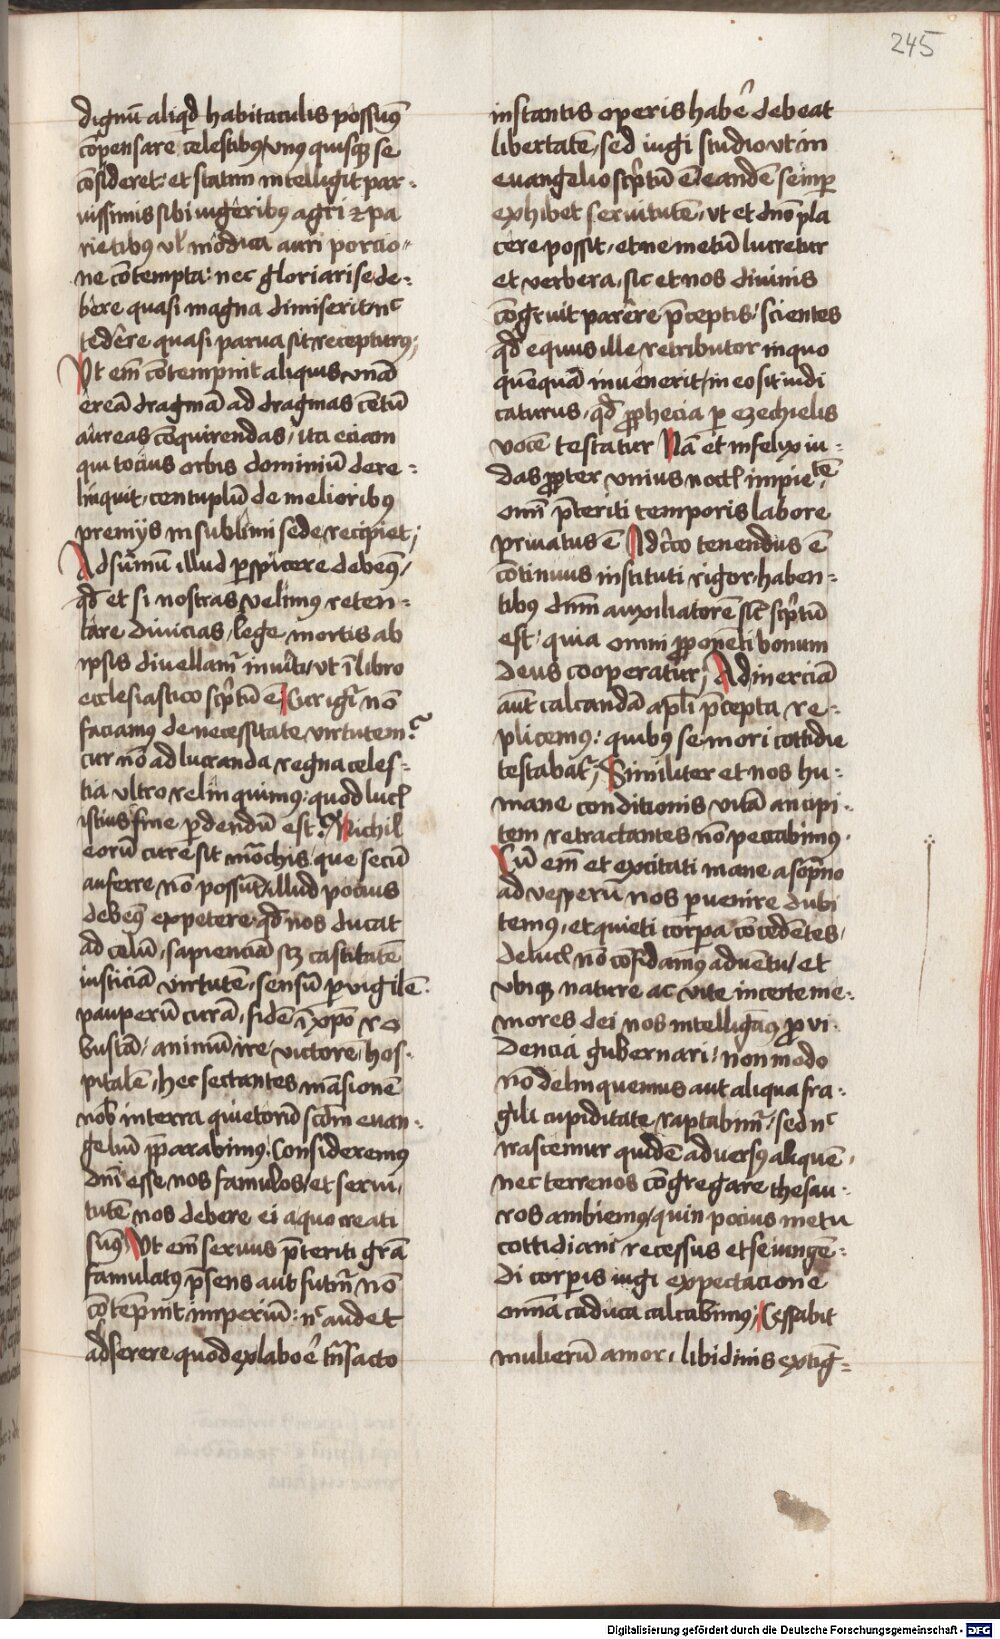 245
dignū aliqd habitaculis possumꝰ
cōpensare celestibꝰ vnus quisqꝫ se
cōsideret: et statim intelligit par-
uissimis sibi iugeribꝰ agri et pa
rietibꝰ vl modica auri porcio-
ne cōtempta: nec gloriari se de-
bere quasi magna dimiserit nc
tedere quasi parua sit recepturus;
Ut em cōtempnit aliquis vnā
ereā dragmā ad dragmas centū
aureas cōquirendas, ita eciam
qui tocius orbis dominiū dere-
linquit, centuplū de melioribus
premijs in sublimi sede recipiet;
Ad sūmū illud pspicere debemꝰ,
qd et si nostras velimꝰ reten-
tare diuicias, lege mortis ab
ipsis diuellamr inuiti, vt ī libro
ecclesiastico scptū ē Cur igr nō
faciamꝰ de necessitate virtutem?
cur nō ad lucranda regna celes-
tia vltro relinquimus: quod lucꝭ
istius fine pdendū est? Nichil
eorū cure sit mōchis que secū
auferre nō possūt, illud pocius
debemꝰ expetere qd nos ducat
ad celū, sapienciā scꝫ castitatē
iusticiā virtutē, sensū puigilē
pauperū curā, fidē ī xpo ro
bustā, animū ire victorē, hos-
pitalē, hec sectantes māsionē
nob in terra quietorū scdm euan-
geliū pparabimus. Consideremus
dni esse nos famulos, et serui,
tutē nos debere ei a quo creati
sumꝰ Ut em seruus pteriti grā
famulatꝰ psens aut futūr nō
cōtēpnit imperiū: nc audet
adserere quod ex labore trāsacto
instantis operis habere debeat
libertatē, sed iugi studio vt in
euangelio scptū ē eandē semp
exhibet seruitutē, vt et dno pla
cere possit, et ne metū lucretur
et verbera, sic et nos diuinis
cōgruit parere pceptis, scientes
qd equus ille retributor in quo
quēquā inuenerit, in eo sit iudi
caturus, qd pphecia p ezechielis
vocē testatur Nā et infelix iu-
das ppter vnius noctꝭ impietatē
omī pteriti temporis labore
priuatus ē Adcirco tenendus ē
cōtinuus instituti rigor, haben-
tibꝰ dnm auxiliatorē sic scptū
est, quia omni pponēti bonum
deus cooperatur; Ad inerciā
aut calcandā apli pcepta re-
plicemus: quibꝰ se mori cottidie
testabatr; Similiter et nos hu-
mane conditionis vitā ancipi-
tem retractantes nō peccabimus.
Cū em et excitati mane a sopno
ad vesperū nos puenire dubi
temus, et quieti corpa cōcedētes,
de lucꝭ nō cōfidamus aduētu, et
vbiqꝫ nature ac vite incerte me-
mores dei nos intelligamꝰ proui-
dencia gubernari: non modo
nō delinquemus aut aliqua fra-
gili cupiditate raptabimr, sed nc
irascemur quidē aduersꝰ aliquē,
nec terrenos cōgregare thesau-
ros ambiemꝰ, quin pocius metu
cottidiani recessus et seiungē-
di corpis iugi expectacione
omnia caduca calcabimus; Cessabit
mulierū amor, libidinis extīg-
Digitalisierung gefördert durch die Deutsche Forschungsgemeinschaft - DFG